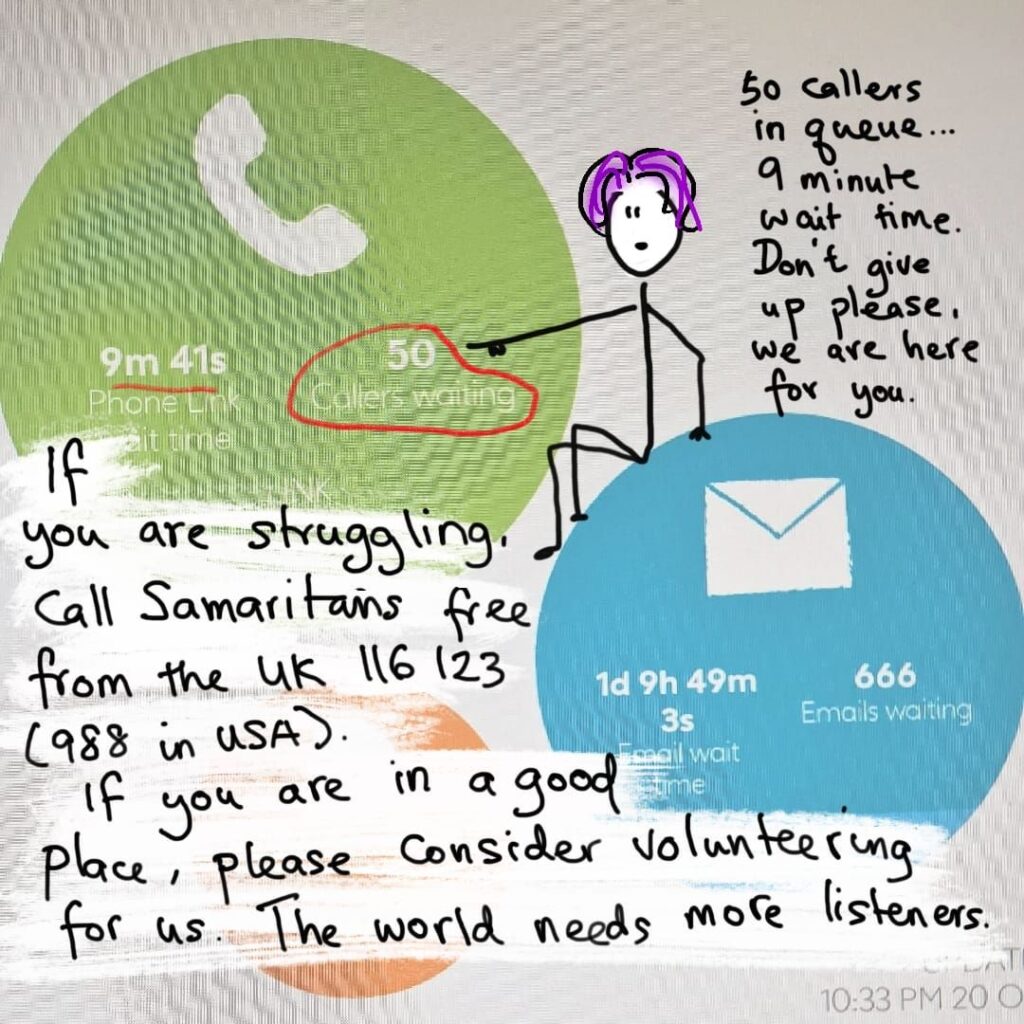 50 callers
in queue...
9 minute
wait time.
Don't give
up please,
we are here
for you.
9m 41s
Phone Link
ait time
50
Callers waiting
If
you are struggling,
Call Samaritans free
from the UK 116 123
(988 in USA).
If you are in a good
place, please consider volunteering
for us. The world needs more listeners.
1d 9h 49m
3s
Email wait
time
666
Emails waiting
10:33 PM 20 O